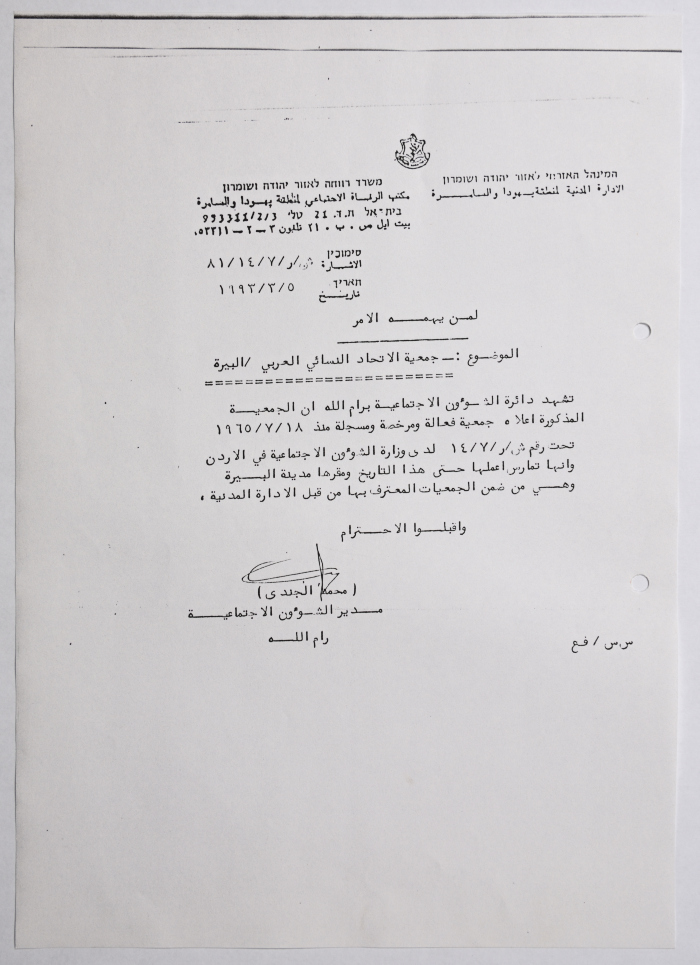 המינהל האזרחי לאזור יהודה ושומרון
الادارة المدنية لمنطقة يهودا والسامـــــرة
משרד רווחה לאזור יהודה ושומרון
مكتب الرفاة الاجتماعي لمنطقة يهودا والسامرة
בית-אל ת.ד. 21 טל׳ 993311/2/3
بيت ايل ص . ب . ٢١ تلفون ٣ – ٢ – ٥٣٣١١
סימוכין
الاشارة ش/ر/٨١/١٤/٧
תאריך
تاريـــخ ١٩٩٣/٣/٥
لمـن يهمـــــه الامر
الموضـوع :ـ جمعية الاتحاد النسائي العربي /البيرة
=========================
تشهد دائرة الشـوؤن الاجتماعيـة برام الله ان الجمعيـــة
المذكورة اعلا ه جمعية فعالة ومرخصة ومسجلة منذ ١٩٦٥/٧/١٨
تحت رقم ش/ر/١٤/٧ لدى وزارة الشوؤن الاجتماعية في الاردن
وانها تمارس اعملها حتـى هذا التاريخ ومقرها مدينة البـيرة
وهـــي من ضمن الجمعيات المعترف بها من قبل الادارة المدنية ،
واقبلـــوا الاحــترام
( محمد الجندى )
مــدير الشــوؤن الاجتماعيـــــة
رام اللـــه
س.س / فـع